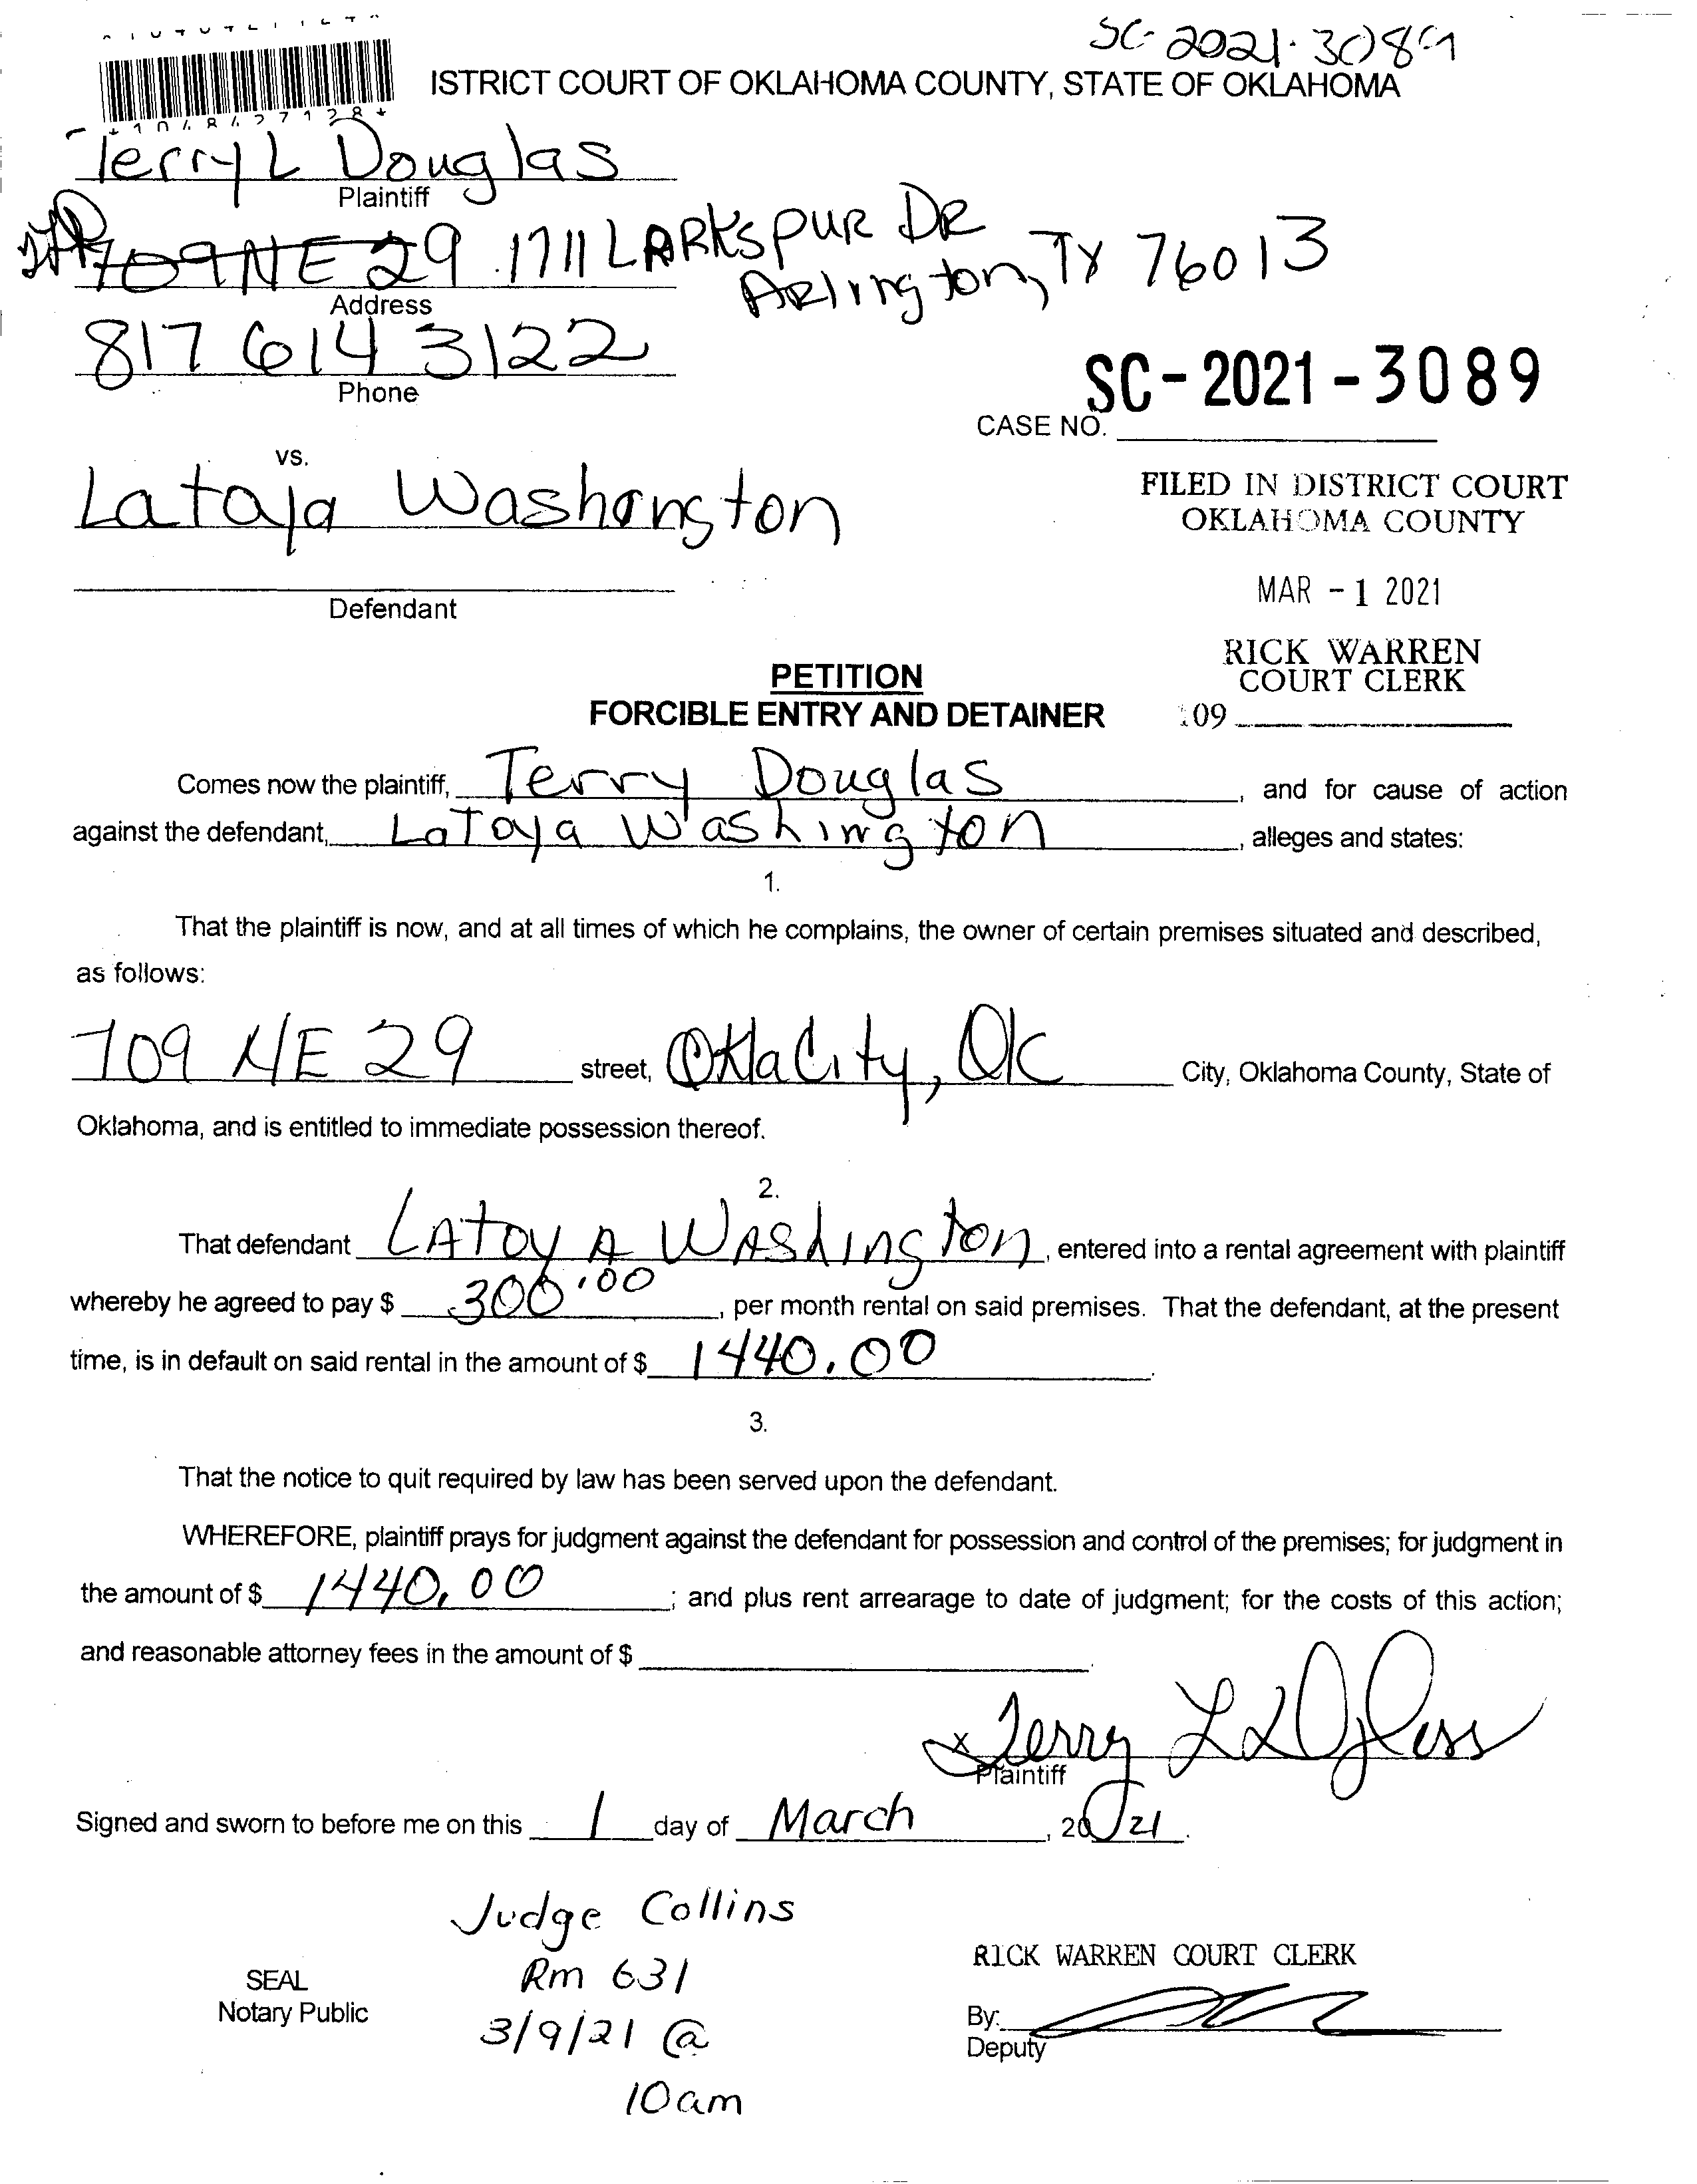 SC-2021-3089
ISTRICT COURT OF OKLAHOMA COUNTY, STATE OF OKLAHOMA
*1048427128*
Terry L Douglas
Plaintiff
709 NE 29 1711 LARKSPUR DR
Arlington, TX 76013
Address
817 614 3122
Phone
SC-2021-3089
CASE NO.
vs.
Lataja Washington
FILED IN DISTRICT COURT
OKLAHOMA COUNTY
MAR -1 2021
Defendant
RICK WARREN
COURT CLERK
PETITION
FORCIBLE ENTRY AND DETAINER
109
Comes now the plaintiff, Terry Douglas, and for cause of action
against the defendant, LaToya Washington, alleges and states:
1.
That the plaintiff is now, and at all times of which he complains, the owner of certain premises situated and described,
as follows:
709 NE 29 street, Okla City, OK City, Oklahoma County, State of
Oklahoma, and is entitled to immediate possession thereof.
2.
That defendant LAtoyA WAshington, entered into a rental agreement with plaintiff
whereby he agreed to pay $ 300.00, per month rental on said premises. That the defendant, at the present
time, is in default on said rental in the amount of $ 1440.00.
3.
That the notice to quit required by law has been served upon the defendant.
WHEREFORE, plaintiff prays for judgment against the defendant for possession and control of the premises; for judgment in
the amount of $ 1440.00; and plus rent arrearage to date of judgment; for the costs of this action;
and reasonable attorney fees in the amount of $
x Terry L Douglass
Plaintiff
Signed and sworn to before me on this 1 day of March, 2021.
Judge Collins
RICK WARREN COURT CLERK
Rm 631
SEAL
Notary Public
3/9/21 @
By:
Deputy
10am